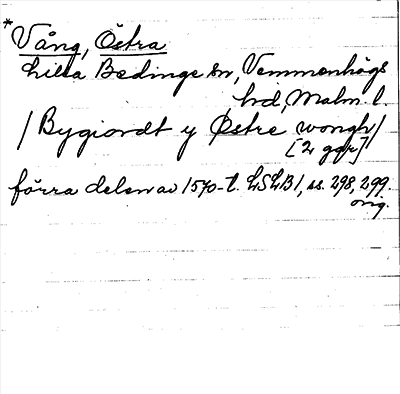 * Vång, Östra
Lilla Bedinge sn, Vemmenhögs
hrd, Malm. l.
/ Bygiordt y Østre wongh /
[2 ggr]
förra delen av 1570-t. LSLB 1, ss. 298, 299.
orig.